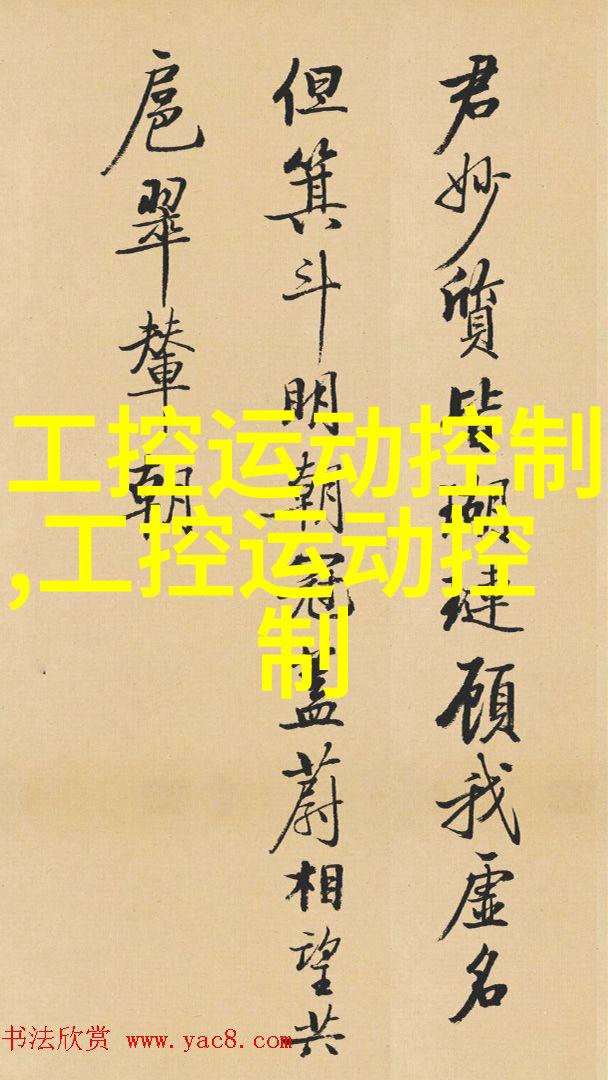 君妙質皆瑚璉顧我虛名
但箕斗明朝冠蓋蔚相望共
扈翠輦朝
工控运动控制
,工控运动控
制
书法欣赏 www.yac8.com